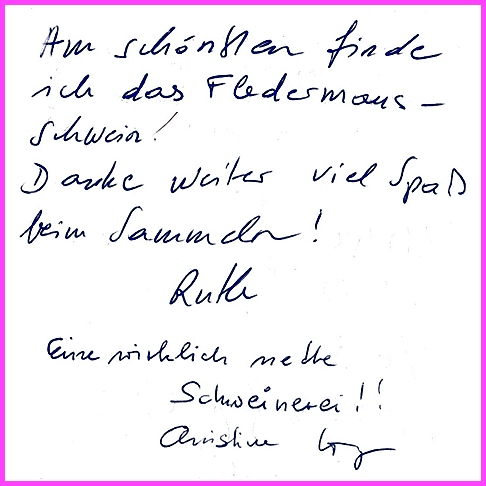 Am schönsten finde
ich das Fledermaus-
schwein!
Danke weiter viel Spaß
beim Sammeln!
Ruth
Eine wirklich nette
Schweinerei!!
Christine